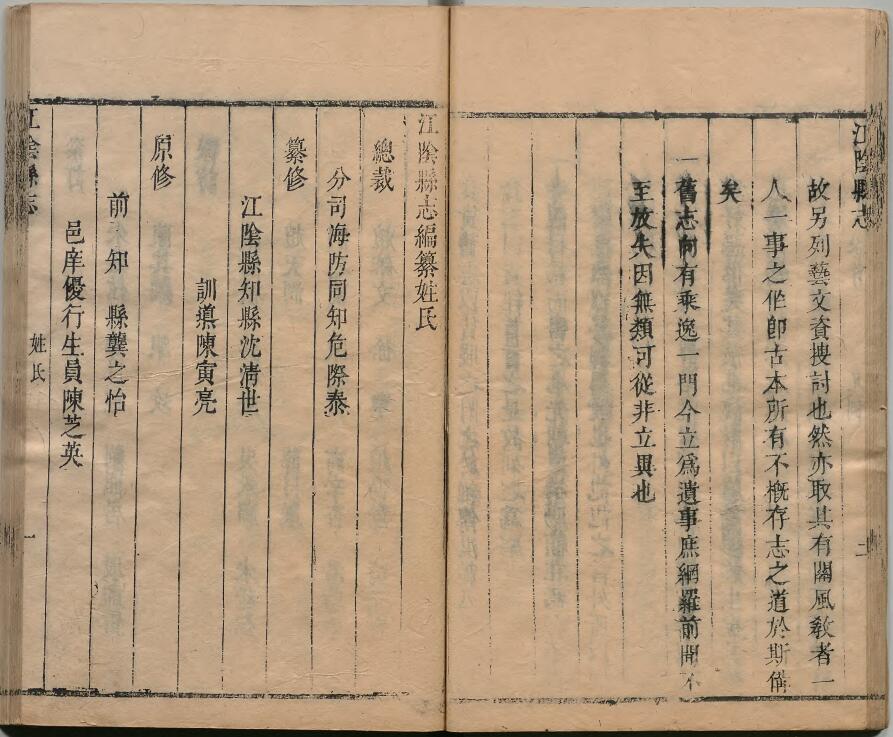 江陰縣志
二
故另列藝文資搜討也然亦取其有關風敎者一
人一事之作卽古本所有不槪存志之道於斯備
矣
一舊志向有乘逸一門今立爲遺事庶網羅前聞不
至放失因無類可從非立異也
江陰縣志編纂姓氏
總裁
分司海防同知危際泰
纂修
江陰縣知縣沈清世
訓導陳寅亮
原修
前 知 縣龔之怡
邑庠優行生員陳芝英
江陰縣志
姓氏
一